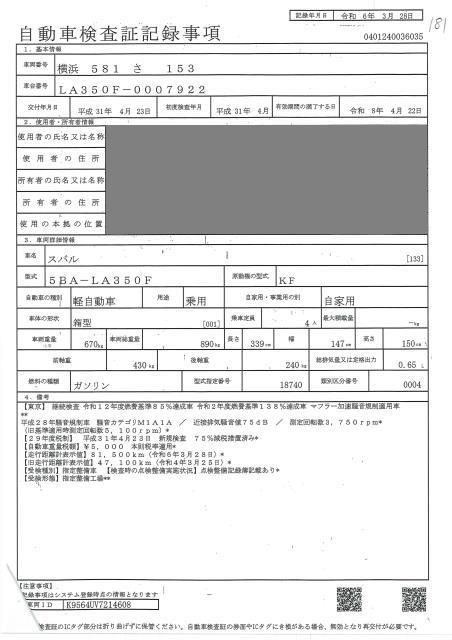 記録年月日 令和 6年 3月 28日
181
自動車検査証記録事項
0401240036035
1. 基本情報
車両番号 横浜 581 さ 153
車台番号 LA350F-0007922
交付年月日 平成 31年 4月 23日 初度検査年月 平成 31年 4月 有効期間の満了する日 令和 8年 4月 22日
2. 使用者・所有者情報
使用者の氏名又は名称
使用者の住所
所有者の氏名又は名称
所有者の住所
使用の本拠の位置
3. 車両詳細情報
車名 スバル [133]
型式 5BA-LA350F 原動機の型式 KF
自動車の種別 軽自動車 用途 乗用 自家用・事業用の別 自家用
車体の形状 箱型 [001] 乗車定員 4人 最大積載量 -kg
車両重量 670kg 車両総重量 890kg 長さ 339cm 幅 147cm 高さ 150cm
前軸重 430kg 後軸重 240kg 総排気量又は定格出力 0.65 L
燃料の種類 ガソリン 型式指定番号 18740 類別区分番号 0004
4. 備考
【東京】 継続検査 令和12年度燃費基準85%達成車 令和2年度燃費基準138%達成車 マフラー加速騒音規制適用車
**
平成28年騒音規制車 騒音カテゴリM1A1A / 近接排気騒音値75dB / 測定回転数3,750rpm*
(旧基準適用時測定回転数5,100rpm)*
【29年度税制】 平成31年4月23日 新規検査 75%減税措置済み*
【自動車重量税額】 ¥5,000 本則税率適用*
【走行距離計表示値】 81,500km(令和6年3月28日)*
【旧走行距離計表示値】 47,100km(令和4年3月25日)*
【受検種別】指定整備車 【検査時の点検整備実施状況】点検整備記録簿記載あり*
【受検形態】指定整備工場**
【注意事項】
記録事項はシステム登録時点の情報となります
車両ID K9564UV7214608
検査証のICタグ部分は折り曲げずに保管ください。自動車検査証の券面やICタグにき損がある場合、無効となり再交付が必要です。